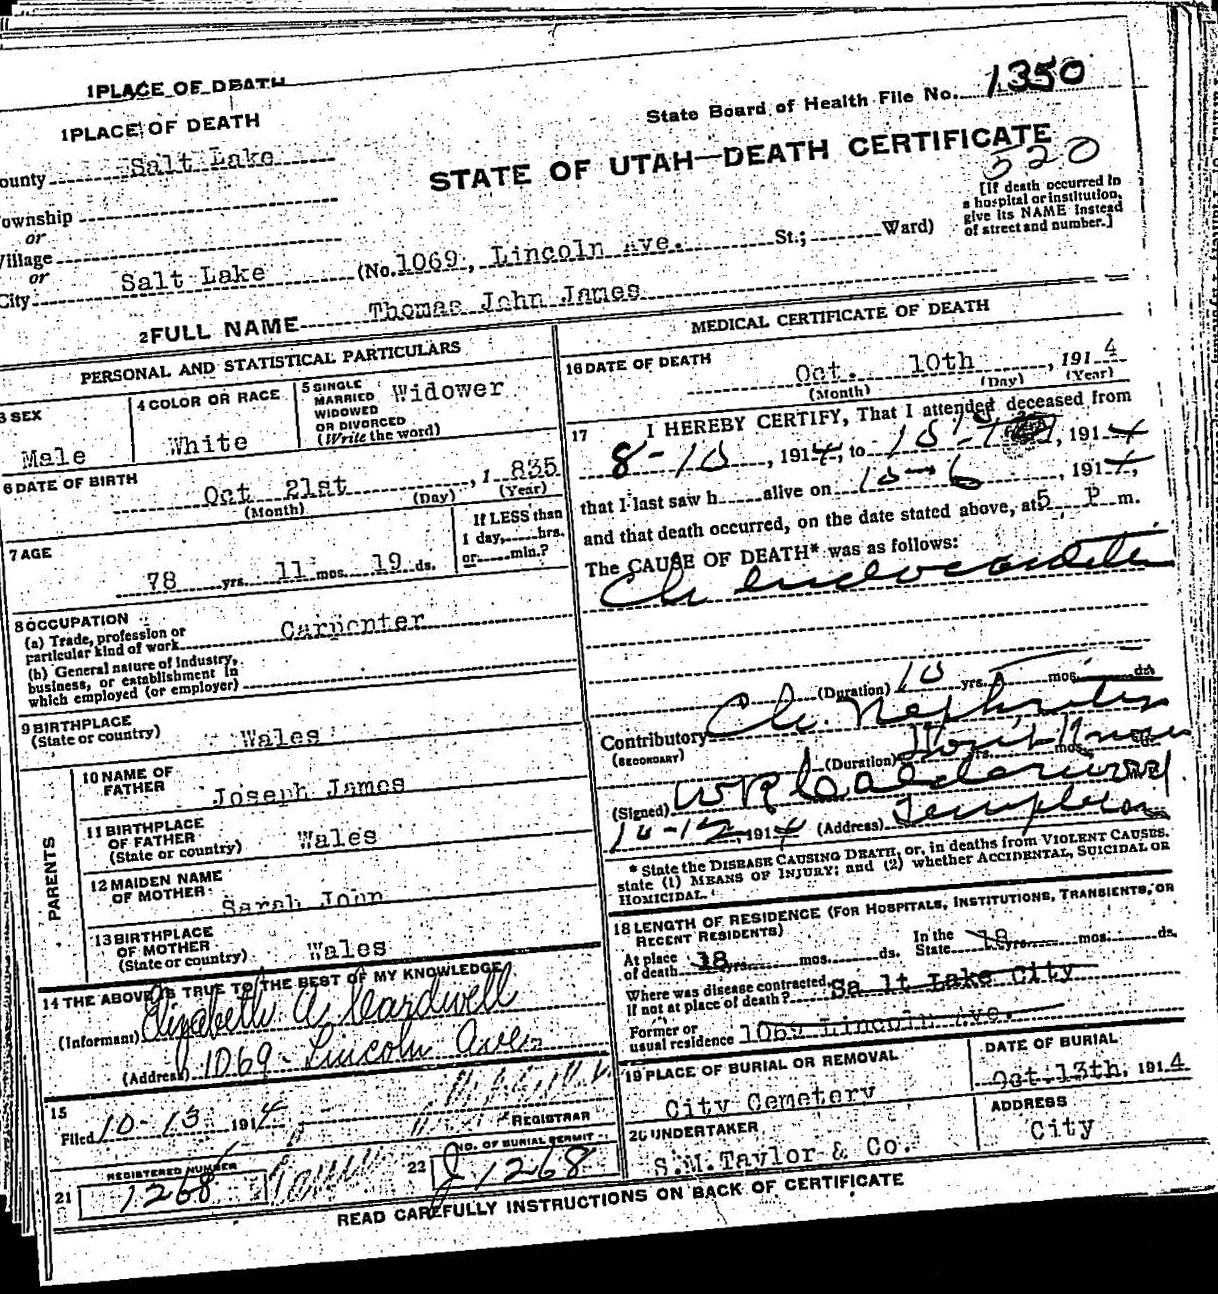 1 PLACE OF DEATH
1 PLACE OF DEATH
State Board of Health File No. 1350
ounty Salt Lake
STATE OF UTAH—DEATH CERTIFICATE
520
ownship
or
Village
or
City Salt Lake (No. 1069, Lincoln Ave. St.; Ward)
[If death occurred in
a hospital or institution,
give its NAME instead
of street and number.]
2 FULL NAME Thomas John James
PERSONAL AND STATISTICAL PARTICULARS
3 SEX
Male
4 COLOR OR RACE
White
5 SINGLE
MARRIED
WIDOWED
OR DIVORCED
(Write the word)
Widower
6 DATE OF BIRTH
Oct 21st, 1 835
(Month) (Day) (Year)
7 AGE
78 yrs. 11 mos. 19 ds.
If LESS than
1 day, hrs.
or min.?
8 OCCUPATION
(a) Trade, profession or
particular kind of work Carpenter
(b) General nature of industry,
business, or establishment in
which employed (or employer)
9 BIRTHPLACE
(State or country) Wales
PARENTS
10 NAME OF
FATHER Joseph James
11 BIRTHPLACE
OF FATHER
(State or country) Wales
12 MAIDEN NAME
OF MOTHER Sarah John
13 BIRTHPLACE
OF MOTHER
(State or country) Wales
14 THE ABOVE IS TRUE TO THE BEST OF MY KNOWLEDGE
(Informant) Elizabeth A Cardwell
(Address) 1069 - Lincoln Ave.
15
Filed 10-13 1914
REGISTRAR
REGISTERED NUMBER
21 1268
NO. OF BURIAL PERMIT
22 J 1268
MEDICAL CERTIFICATE OF DEATH
16 DATE OF DEATH
Oct. 10th, 191 4
(Month) (Day) (Year)
17 I HEREBY CERTIFY, That I attended deceased from
8-10, 1914, to 10-10, 1914
that I last saw h alive on 10-6, 1914,
and that death occurred, on the date stated above, at 5 P m.
The CAUSE OF DEATH* was as follows:
Ch endocarditis
(Duration) 10 yrs. mos. ds.
Contributory Ch. Nephritis
(SECONDARY)
(Duration) Don't Know yrs. mos. ds.
(Signed) W R Calderwood
10-12, 1914 (Address) Templeton
* State the DISEASE CAUSING DEATH, or, in deaths from VIOLENT CAUSES,
state (1) MEANS OF INJURY; and (2) whether ACCIDENTAL, SUICIDAL OR
HOMICIDAL.
18 LENGTH OF RESIDENCE (FOR HOSPITALS, INSTITUTIONS, TRANSIENTS, OR
RECENT RESIDENTS)
At place
of death 18 yrs. mos. ds. In the
State 18 yrs. mos. ds.
Where was disease contracted,
if not at place of death? Sa lt Lake City
Former or
usual residence 1069 Lincoln Ave.
19 PLACE OF BURIAL OR REMOVAL
City Cemetery
DATE OF BURIAL
Oct. 13th, 191 4
20 UNDERTAKER
S.M. Taylor & Co.
ADDRESS
City
READ CAREFULLY INSTRUCTIONS ON BACK OF CERTIFICATE